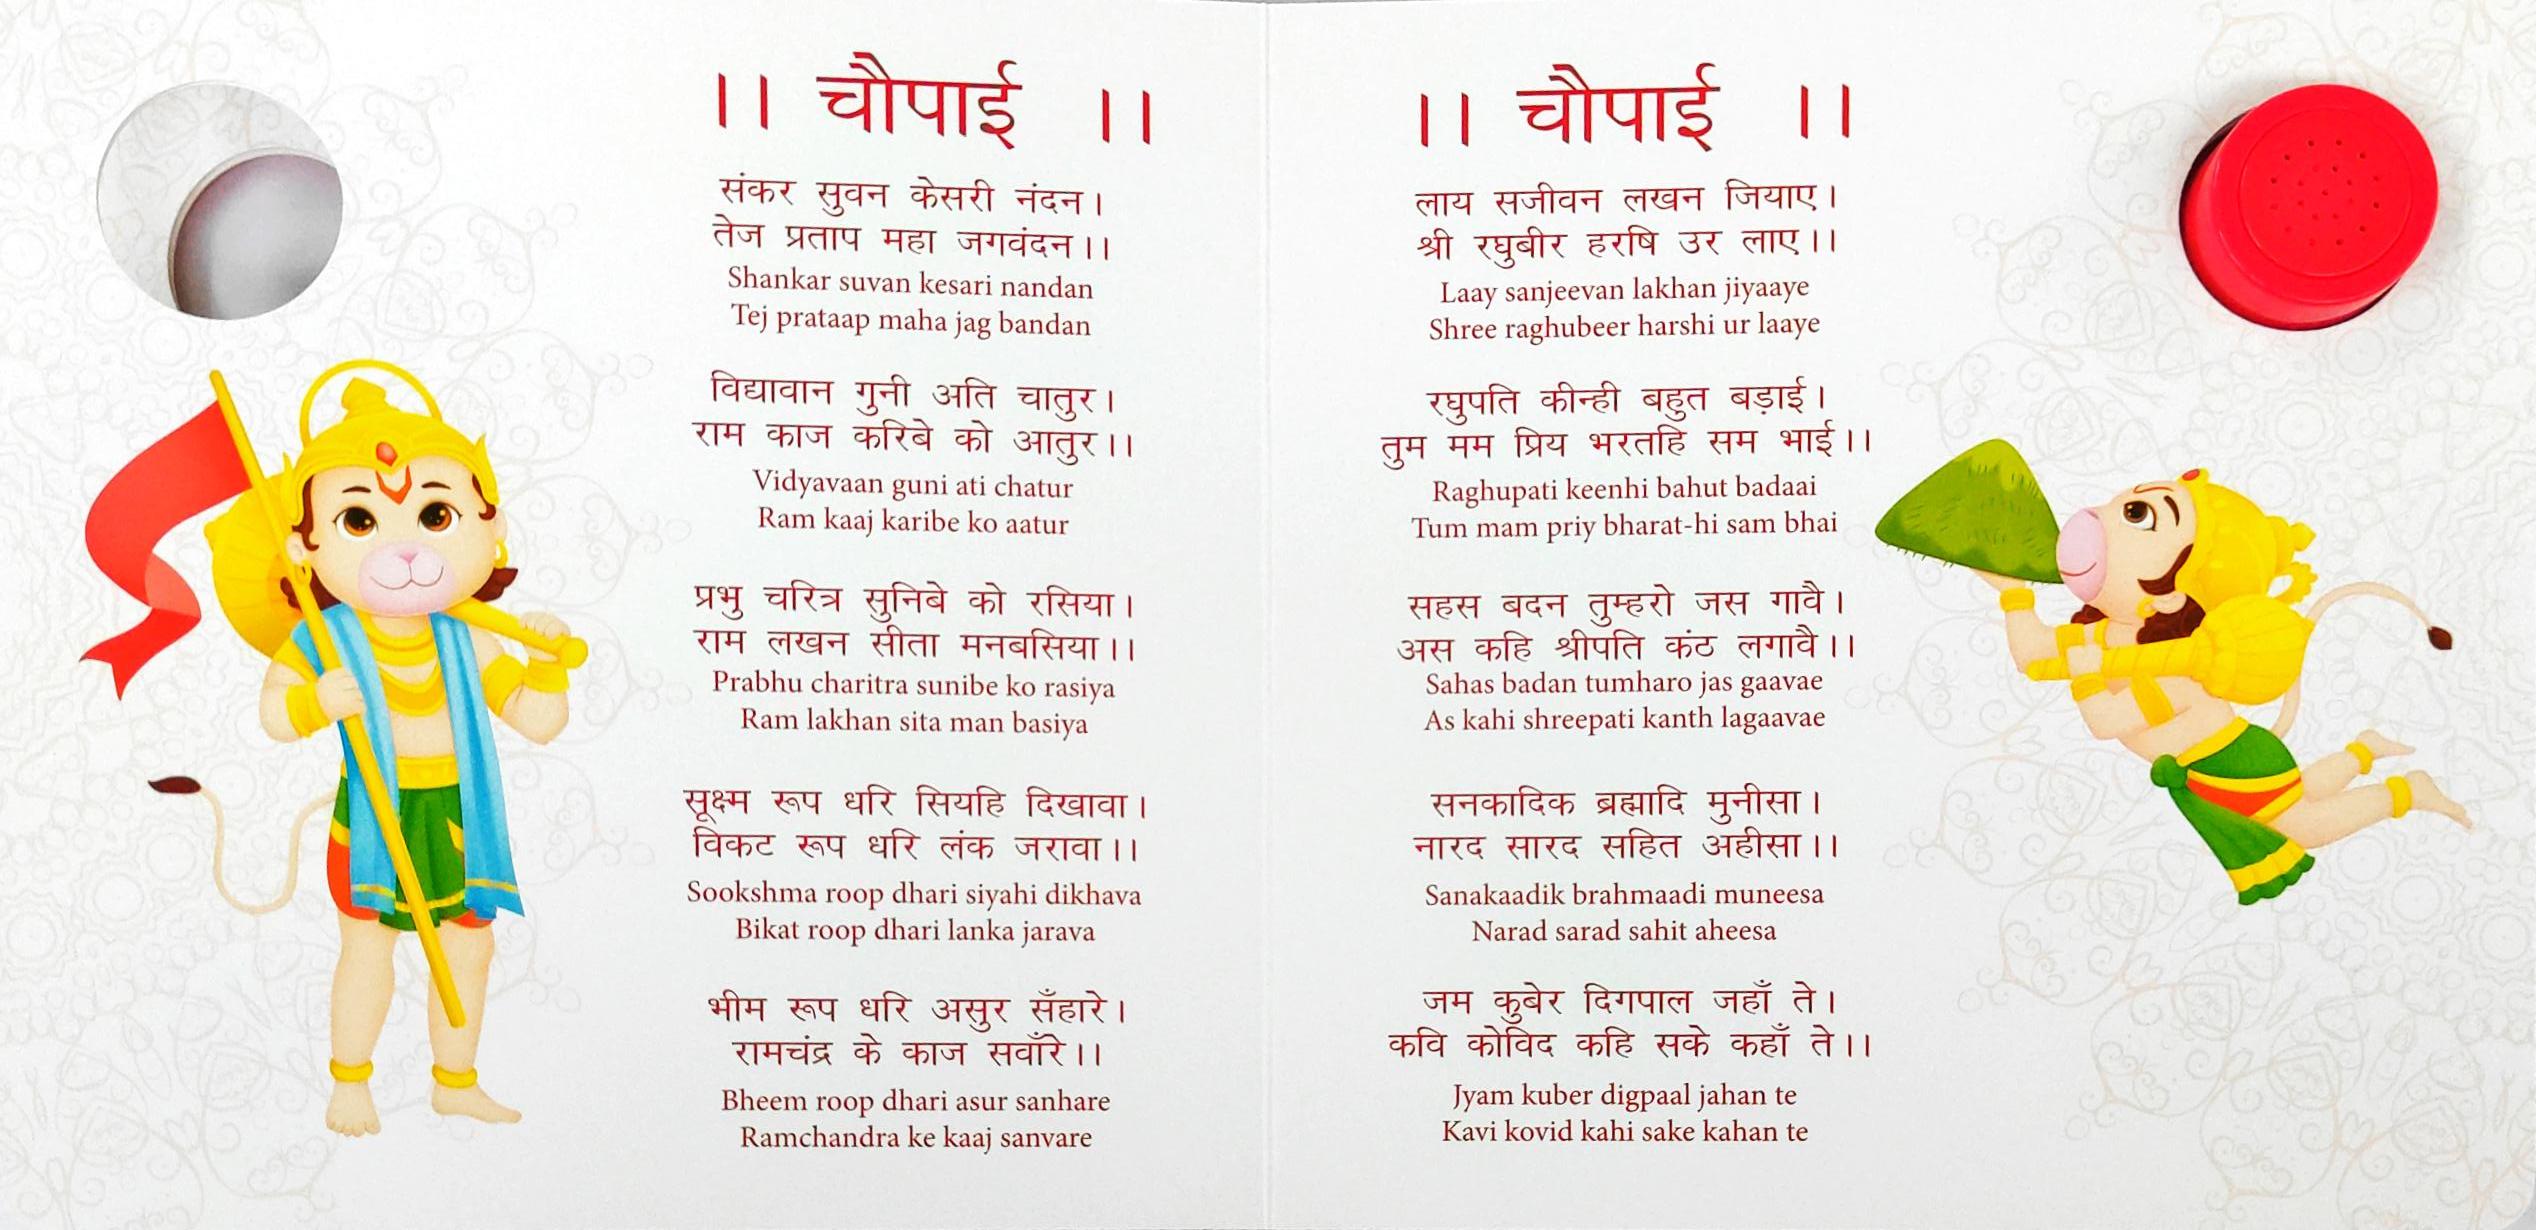 ।। चौपाई ।।
संकर सुवन केसरी नंदन।
तेज प्रताप महा जगवंदन।।
Shankar suvan kesari nandan
Tej prataap maha jag bandan
विद्यावान गुनी अति चातुर।
राम काज करिबे को आतुर।।
Vidyavaan guni ati chatur
Ram kaaj karibe ko aatur
प्रभु चरित्र सुनिबे को रसिया।
राम लखन सीता मनबसिया।।
Prabhu charitra sunibe ko rasiya
Ram lakhan sita man basiya
सूक्ष्म रूप धरि सियहि दिखावा।
विकट रूप धरि लंक जरावा।।
Sookshma roop dhari siyahi dikhava
Bikat roop dhari lanka jarava
भीम रूप धरि असुर सँहारे।
रामचंद्र के काज सवाँरे।।
Bheem roop dhari asur sanhare
Ramchandra ke kaaj sanvare
।। चौपाई ।।
लाय सजीवन लखन जियाए।
श्री रघुबीर हरषि उर लाए।।
Laay sanjeevan lakhan jiyaaye
Shree raghubeer harshi ur laaye
रघुपति कीन्ही बहुत बड़ाई।
तुम मम प्रिय भरतहि सम भाई।।
Raghupati keenhi bahut badaai
Tum mam priy bharat-hi sam bhai
सहस बदन तुम्हरो जस गावै।
अस कहि श्रीपति कंठ लगावै।।
Sahas badan tumharo jas gaavae
As kahi shreepati kanth lagaavae
सनकादिक ब्रह्मादि मुनीसा।
नारद सारद सहित अहीसा।।
Sanakaadik brahmaadi muneesa
Narad sarad sahit aheesa
जम कुबेर दिगपाल जहाँ ते।
कवि कोविद कहि सके कहाँ ते।।
Jyam kuber digpaal jahan te
Kavi kovid kahi sake kahan te